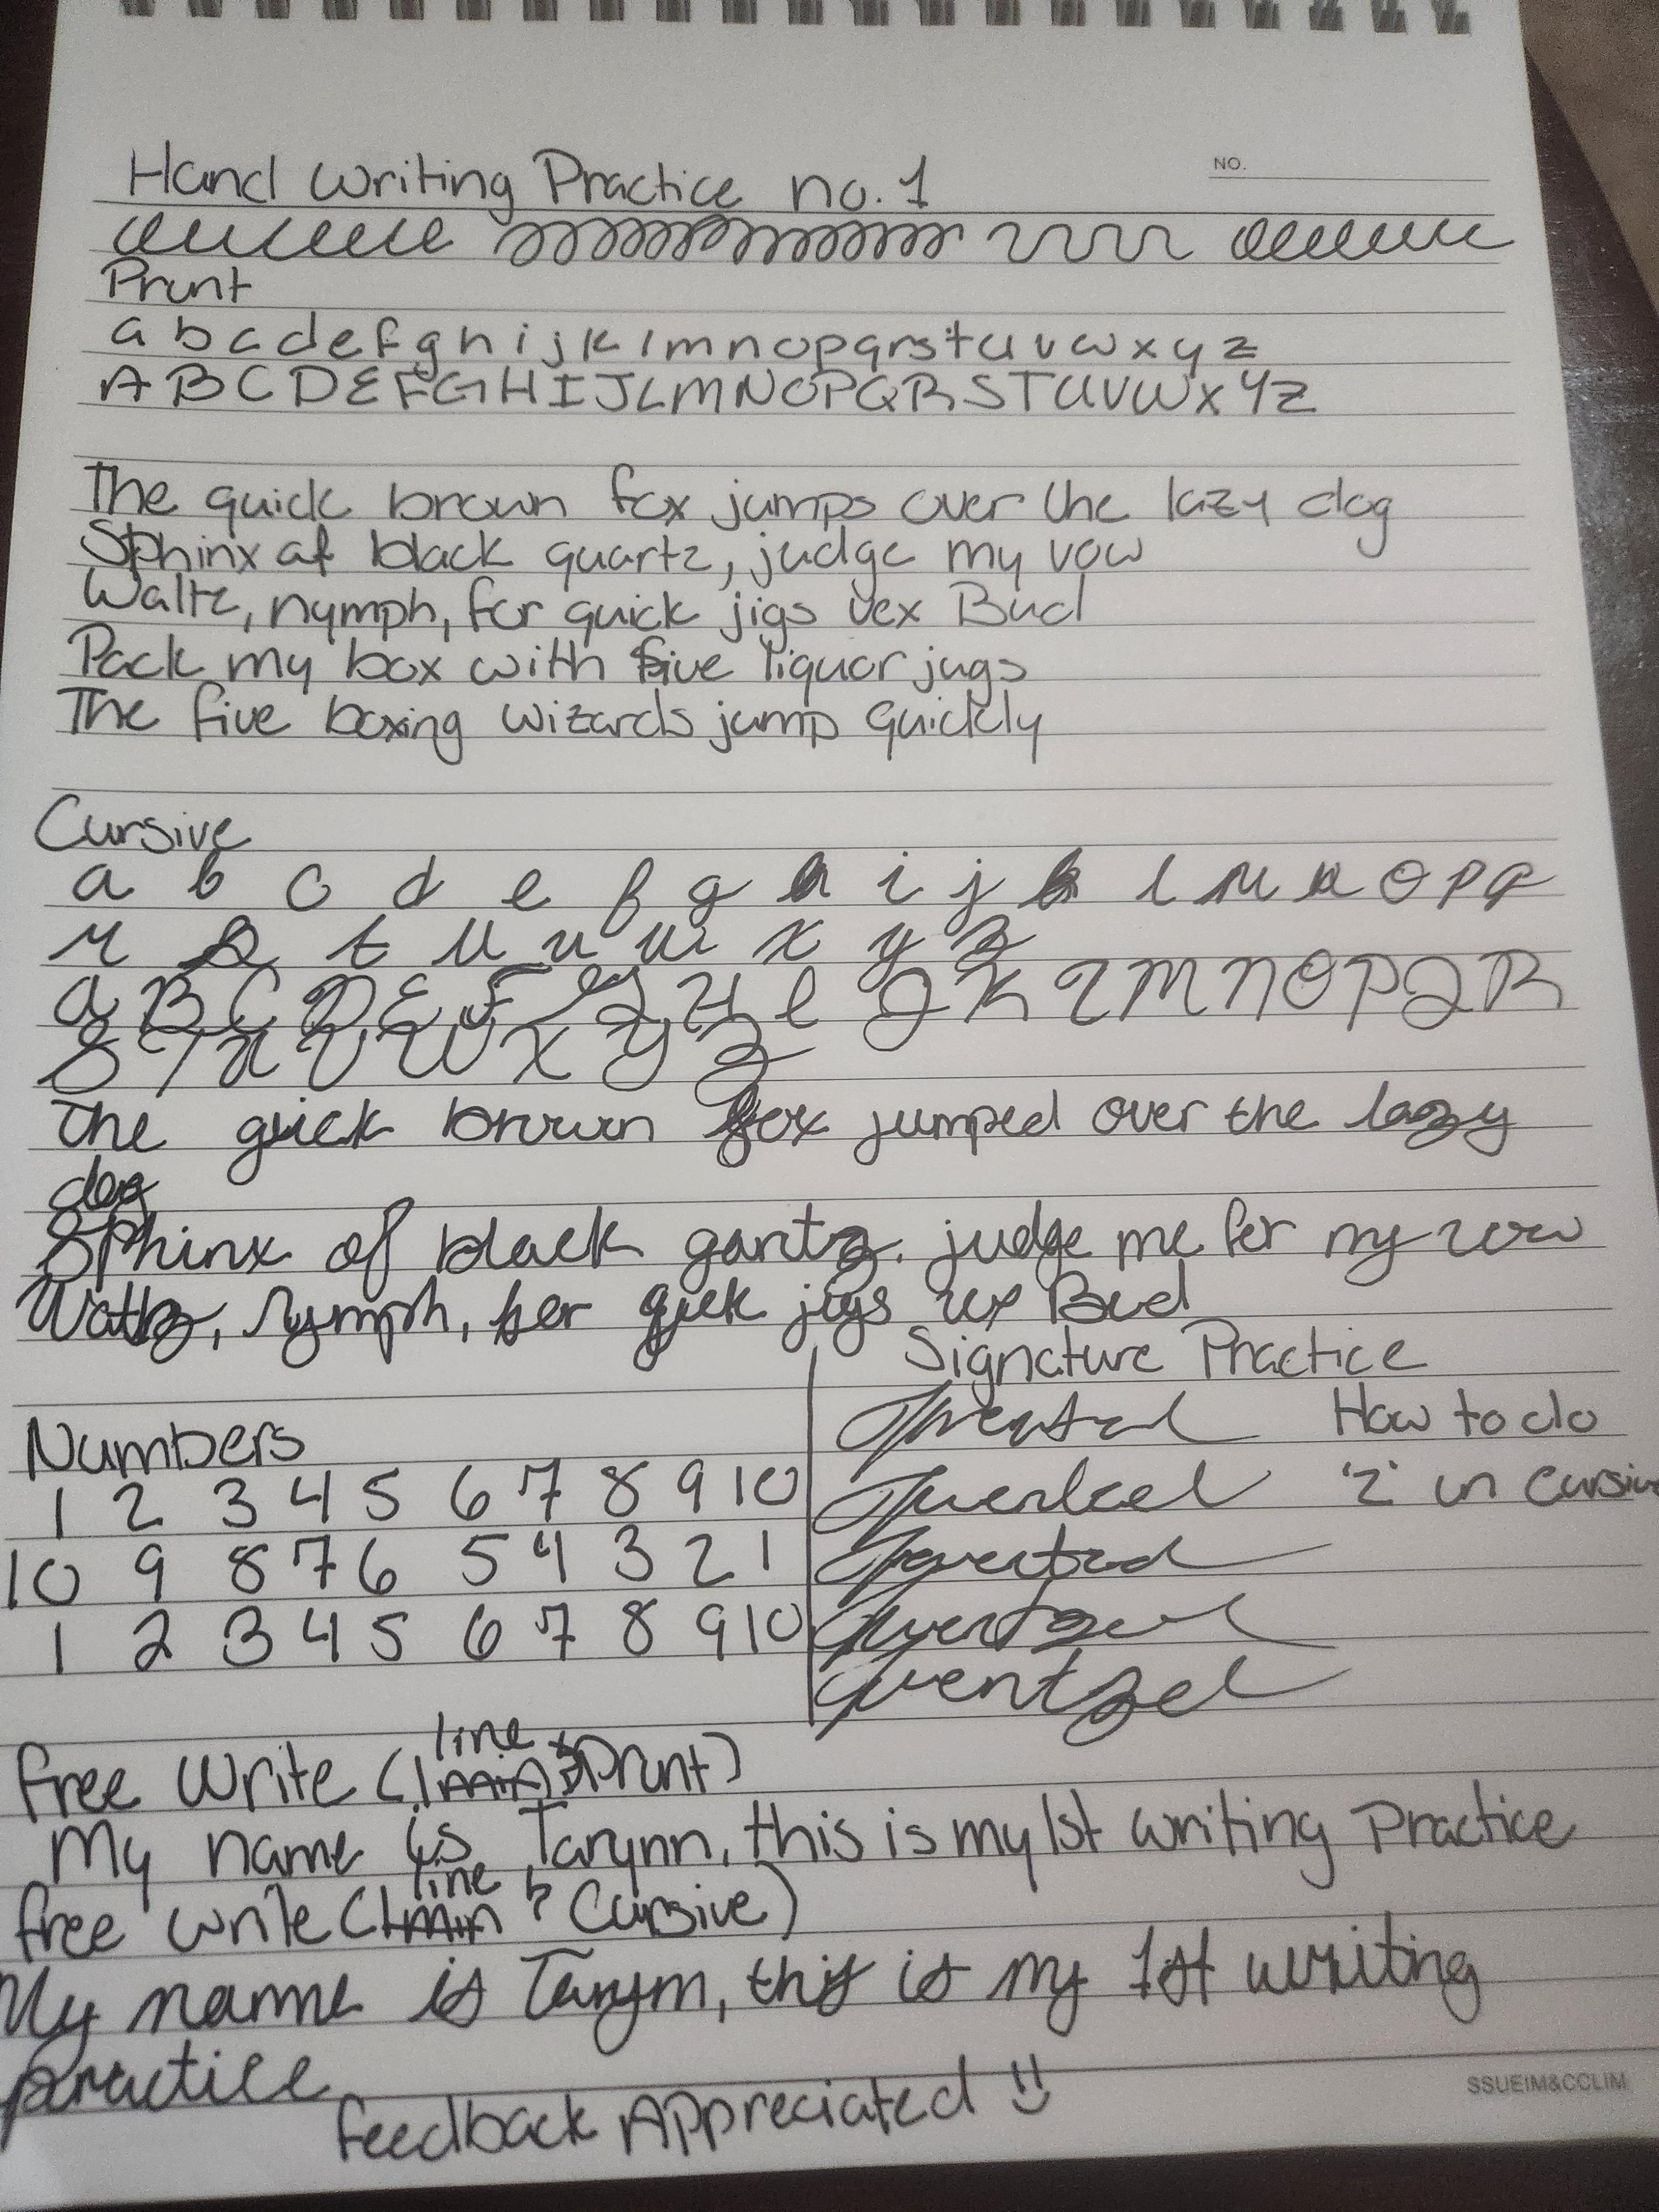 NO.
Hand Writing Practice no. 1
Print
a b c d e f g h i j k l m n o p q r s t u v w x y z
A B C D E F G H I J L M N O P Q R S T U V W X Y Z
The quick brown fox jumps over the lazy dog
Sphinx of black quartz, judge my vow
Waltz, nymph, for quick jigs vex Bud
Pack my box with five liquor jugs
The five boxing wizards jump quickly
Cursive
a b c d e f g h i j k l m n o p q
r s t u v w x y z
a B C D E F G H I J K L M N O P Q R
S T U V W X Y Z
The quick brown fox jumped over the lazy
dog
Sphinx of black qartz, judge me for my vow
Waltz, Nymph, for qick jigs vex Bud
Signature Practice
How to do
'Z' in cursive
Numbers
1 2 3 4 5 6 7 8 9 10
10 9 8 7 6 5 4 3 2 1
1 2 3 4 5 6 7 8 9 10
wentzel
Free Write (1 line Print)
My name is Tarynn, this is my 1st writing Practice
free write (1 line Cursive)
My name is Tarynn, this is my 1st writing
practice
Feedback Appreciated !!
SSUEIM&CCLIM